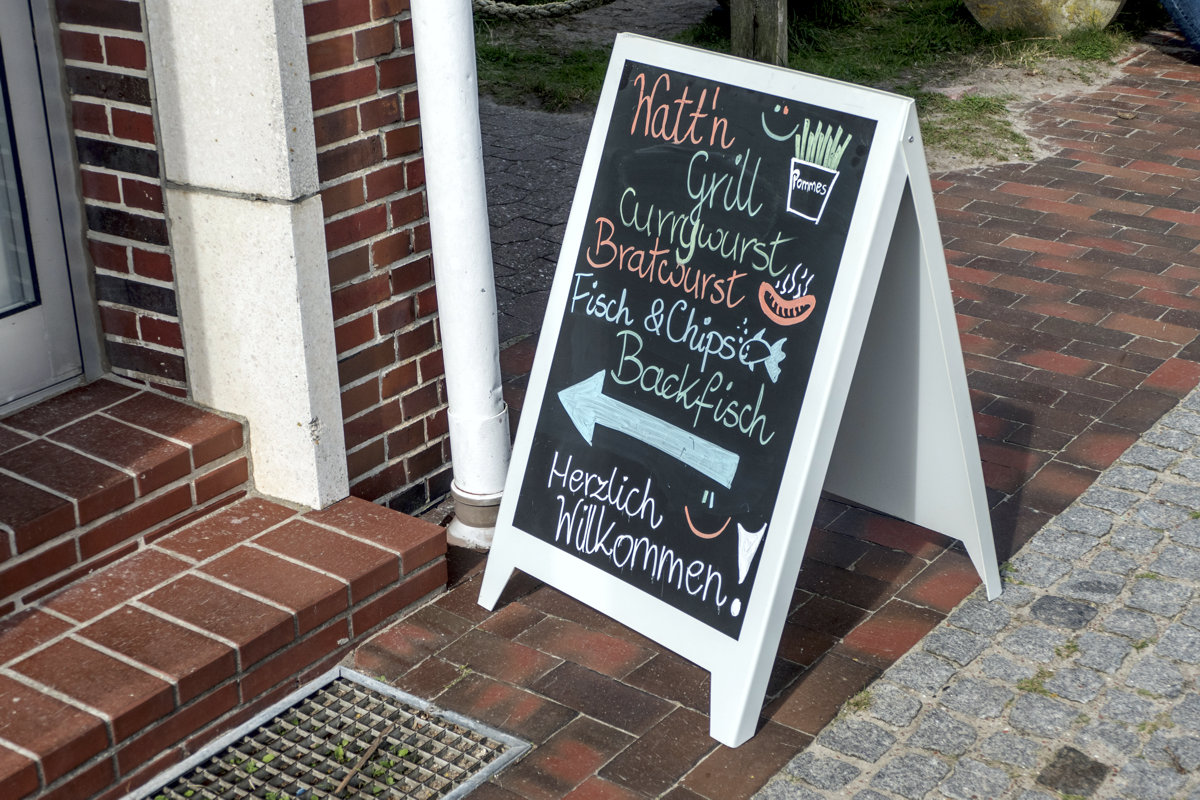 Watt'n
Grill
Pommes
Currywurst
Bratwurst
Fisch & Chips
Backfisch
Herzlich
Willkommen!